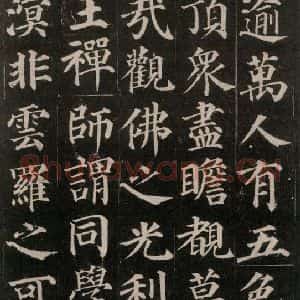 逾萬人有五色
頂眾盡瞻覩莫
哉觀佛之光利
禪師謂同學
漠非雲羅之可